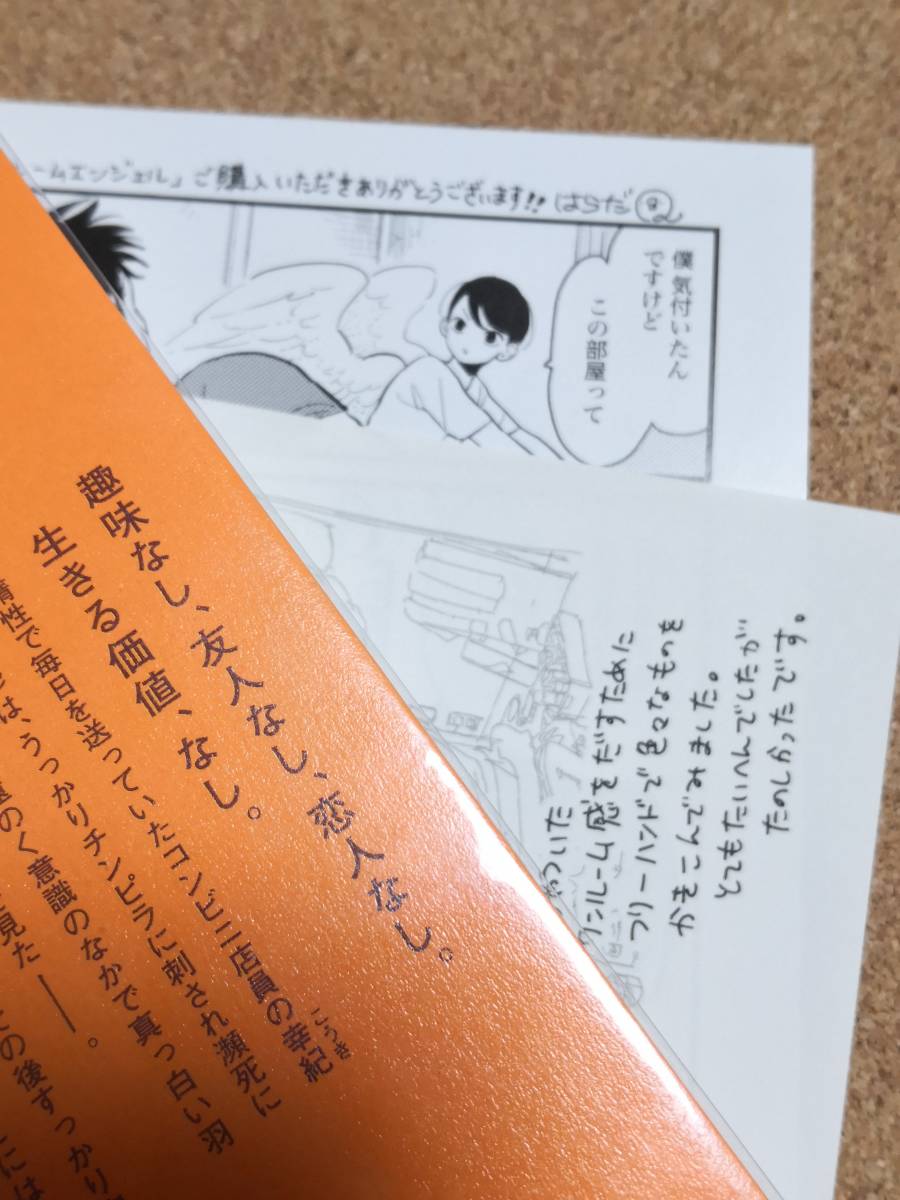 ームエンジェル」ご購入いただきありがとうございます!! はらだ
僕気付いたん
ですけど
この部屋って
たのしかったです。
とてもたいへんでしたが
かきこんでみました。
フリーハンドで色々なものを
ワンルーム感をだすために
づいた
趣味なし、友人なし、恋人なし。
生きる価値、なし。
惰性で毎日を送っていたコンビニ店員の幸紀
こうき
は、うっかりチンピラに刺され瀕死に
のく意識のなかで真っ白い羽
見た――。
の後すっかり
には